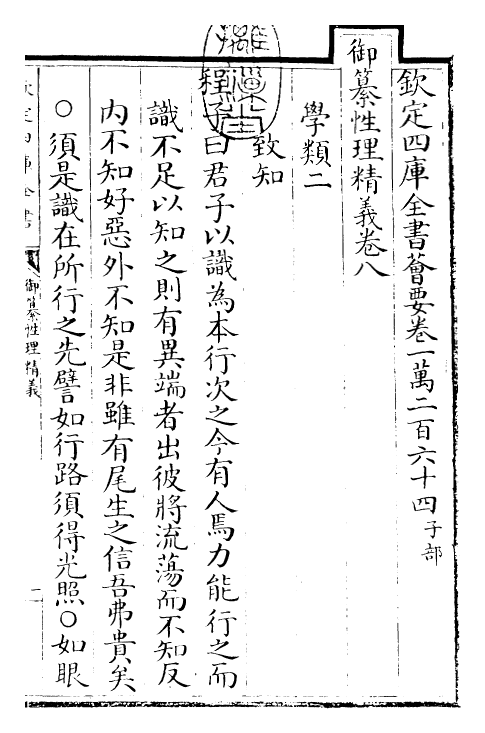 欽定四庫全書薈要卷一萬二百六十四子部
御纂性理精義卷八
學類二
致知
程子曰君子以識為本行次之今有人焉力能行之而
識不足以知之則有異端者出彼將流蕩而不知反
内不知好惡外不知是非雖有尾生之信吾弗貴矣
○須是識在所行之先譬如行路須得光照○如眼
欽定四庫全書
御纂性理精義